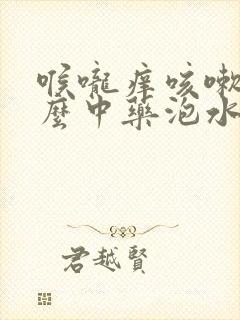 喉嚨痒咳嗽
麼中藥泡水
君越賢